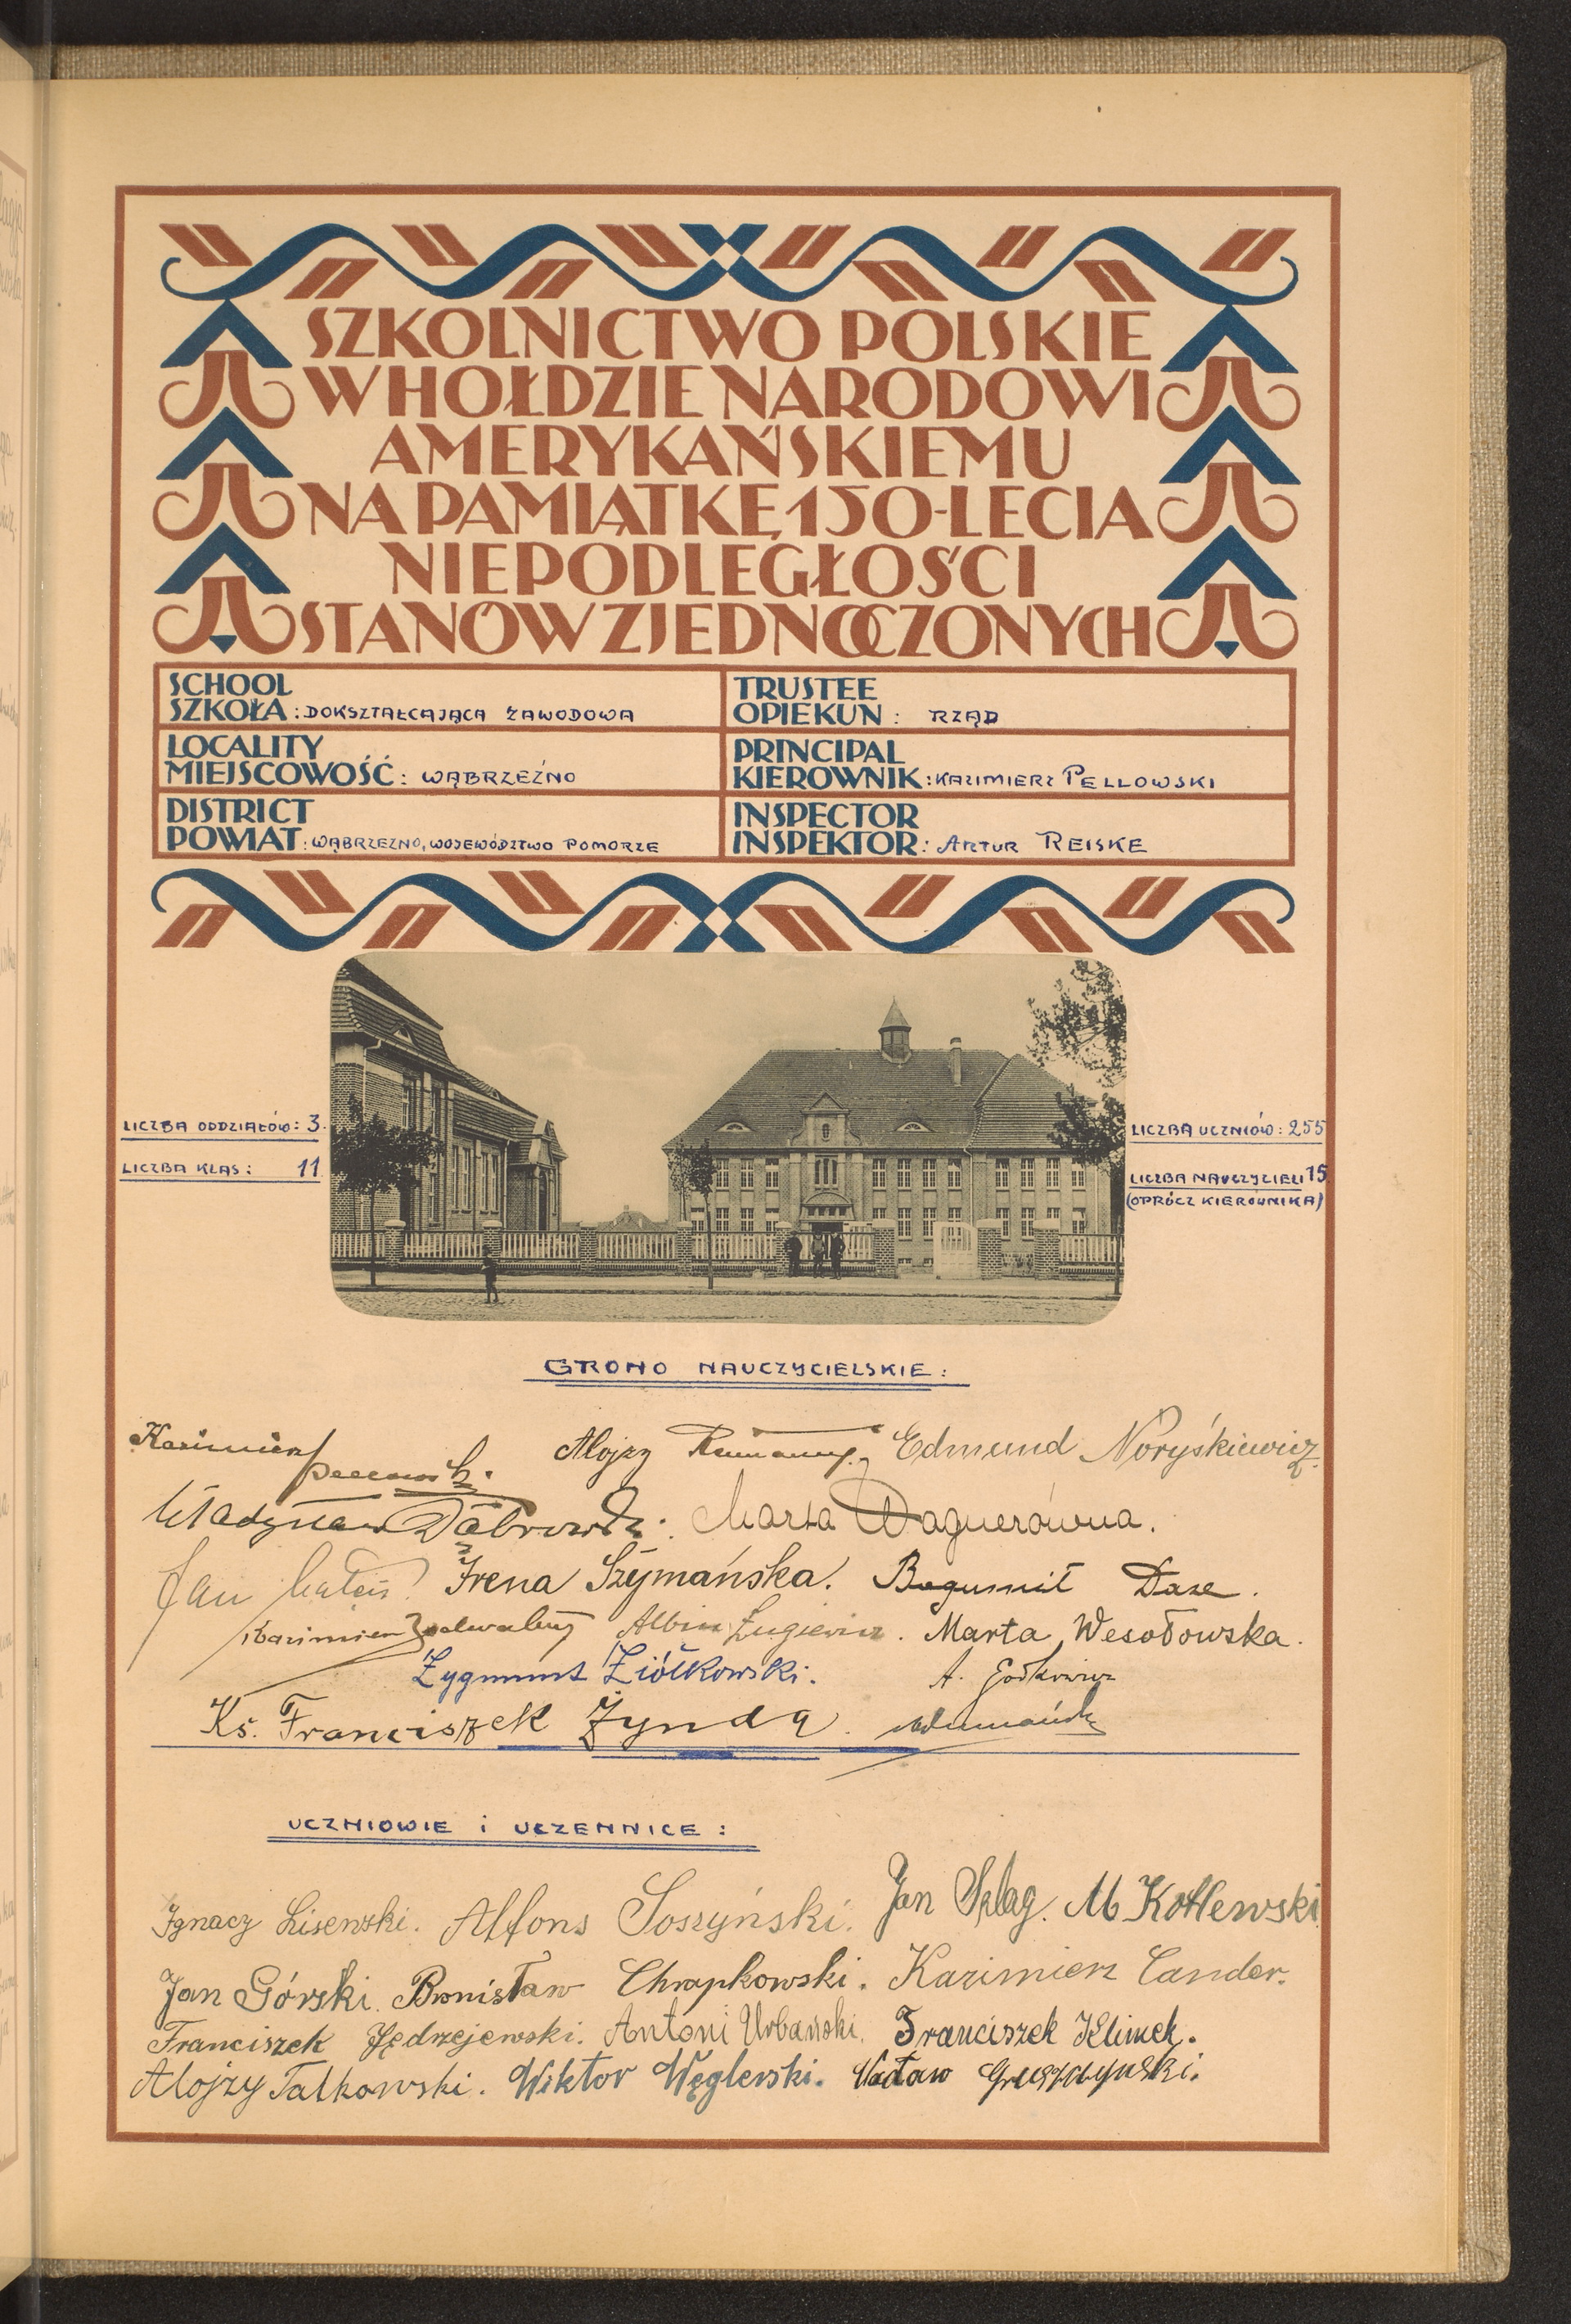 SZKOLNICTWO POLSKIE
W HOŁDZIE NARODOWI
AMERYKAŃSKIEMU
NA PAMIĄTKĘ 150-LECIA
NIEPODLEGŁOŚCI
STANÓW ZJEDNOCZONYCH
SCHOOL
SZKOŁA: DOKSZTAŁCAJĄCA ZAWODOWA
TRUSTEE
OPIEKUN: RZĄD
LOCALITY
MIEJSCOWOŚĆ: WĄBRZEŹNO
PRINCIPAL
KIEROWNIK: KAZIMIERZ PELLOWSKI
DISTRICT
POWIAT: WĄBRZEZNO, WOJEWÓDZTWO POMORZE
INSPECTOR
INSPEKTOR: ARTUR REISKE
LICZBA ODDZIAŁÓW: 3.
LICZBA KLAS: 11
LICZBA UCZNIÓW: 255
LICZBA NAUCZYCIELI 15
(OPRÓCZ KIEROWNIKA)
GRONO NAUCZYCIELSKIE:
Kazimierz Pellowski. Alojzy Edmund Noryśkiewicz.
Władysław Dąbrowski. Marta Wagnerówna.
Jan Irena Szymańska. Bogumił Daze.
Kazimierz Albin Żugiewicz. Marta Wesołowska.
Zygmunt Ziółkowski. A.
Ks. Franciszek Zynda.
UCZNIOWIE i UCZENNICE:
Ignacy Lisewski. Alfons Soszyński. Jan Szlag. M Kotlewski
Jan Górski. Bronisław Chrapkowski. Kazimierz Cander.
Franciszek Jędrzejewski. Antoni Urbański. Franciszek Klimek.
Alojzy Talkowski. Wiktor Węglerski. Wacław Gruszczyński.